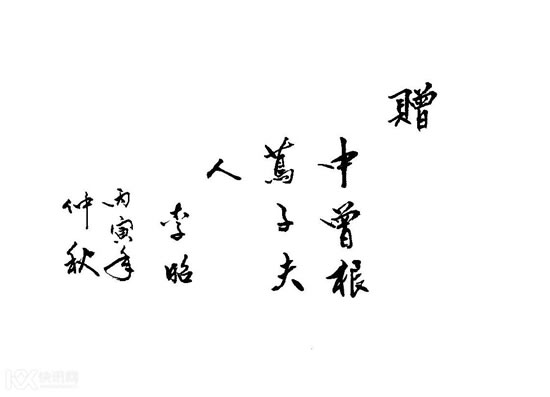 贈
中曽根
蔦子夫
人
李昭
丙寅年
仲秋
快讯网